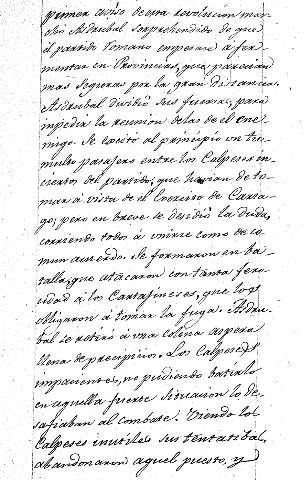 primer aviso de esta revolucion mar-
chó Asdrubal sorprehendido de que
el partido Romano empesase à fer-
mentar en Provincias, que parecian
mas seguras por la gran distancia.
Asdrubal dividio sus fuerzas, para
impedir la reunion de las de el ene-
migo. Se excitó al principio un tu-
multo pasajero entre los Calpeses in-
ciertos del partido, que havian de to-
mar à vista de el Exercito de Carta-
go; pero en breve se desidió la duda,
corriendo todos à unirse como de co-
mun acuerdo. Se formaron en ba-
talla, que atacaron con tanta fero-
cidad à los Cartajineses, que los
obligaron à tomar la fuga. Asdru-
bal se retiró à una colina aspera
llena de precipicios. Los Calpeses
impacientes, no pudiendo batirlo
en aquella fuerte situacion lo de-
safiaban al combate. Viendo los
Calpeses inutiles sus tentatibas,
abandonaron aquel puesto, y